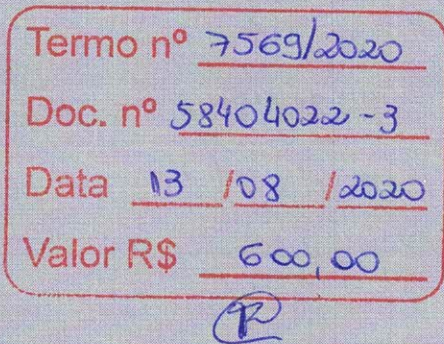 Termo nº 7569/2020
Doc. nº 58404022-3
Data 13 /08 /2020
Valor R$ 600,00